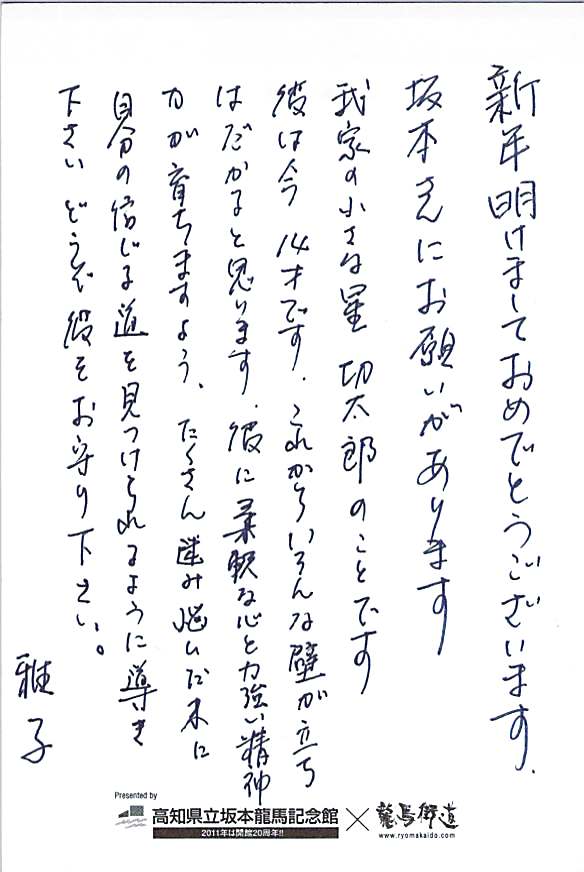 新年明けましておめでとうございます.
坂本さんにお願いがあります
我家の小さな星 功太郎のことです
彼は今 14才です. これからいろんな壁が立ち
はだかると思います. 彼に柔軟な心と力強い精神
力が育ちますよう、たくさん進み悩んだ末に
自分の信じる道を見つけられるように導き
下さい どうぞ彼をお守り下さい。
雅子
Presented by
高知県立坂本龍馬記念館 × 龍馬街道
2011年は開館20周年!!
www.ryomakaido.com